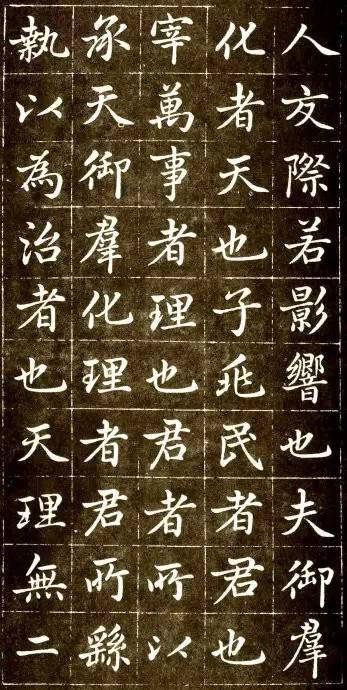 人交際若影響也夫御羣
化者天也子兆民者君也
宰萬事者理也君者所以
承天御羣化理者君所繇
執以為治者也天理無二